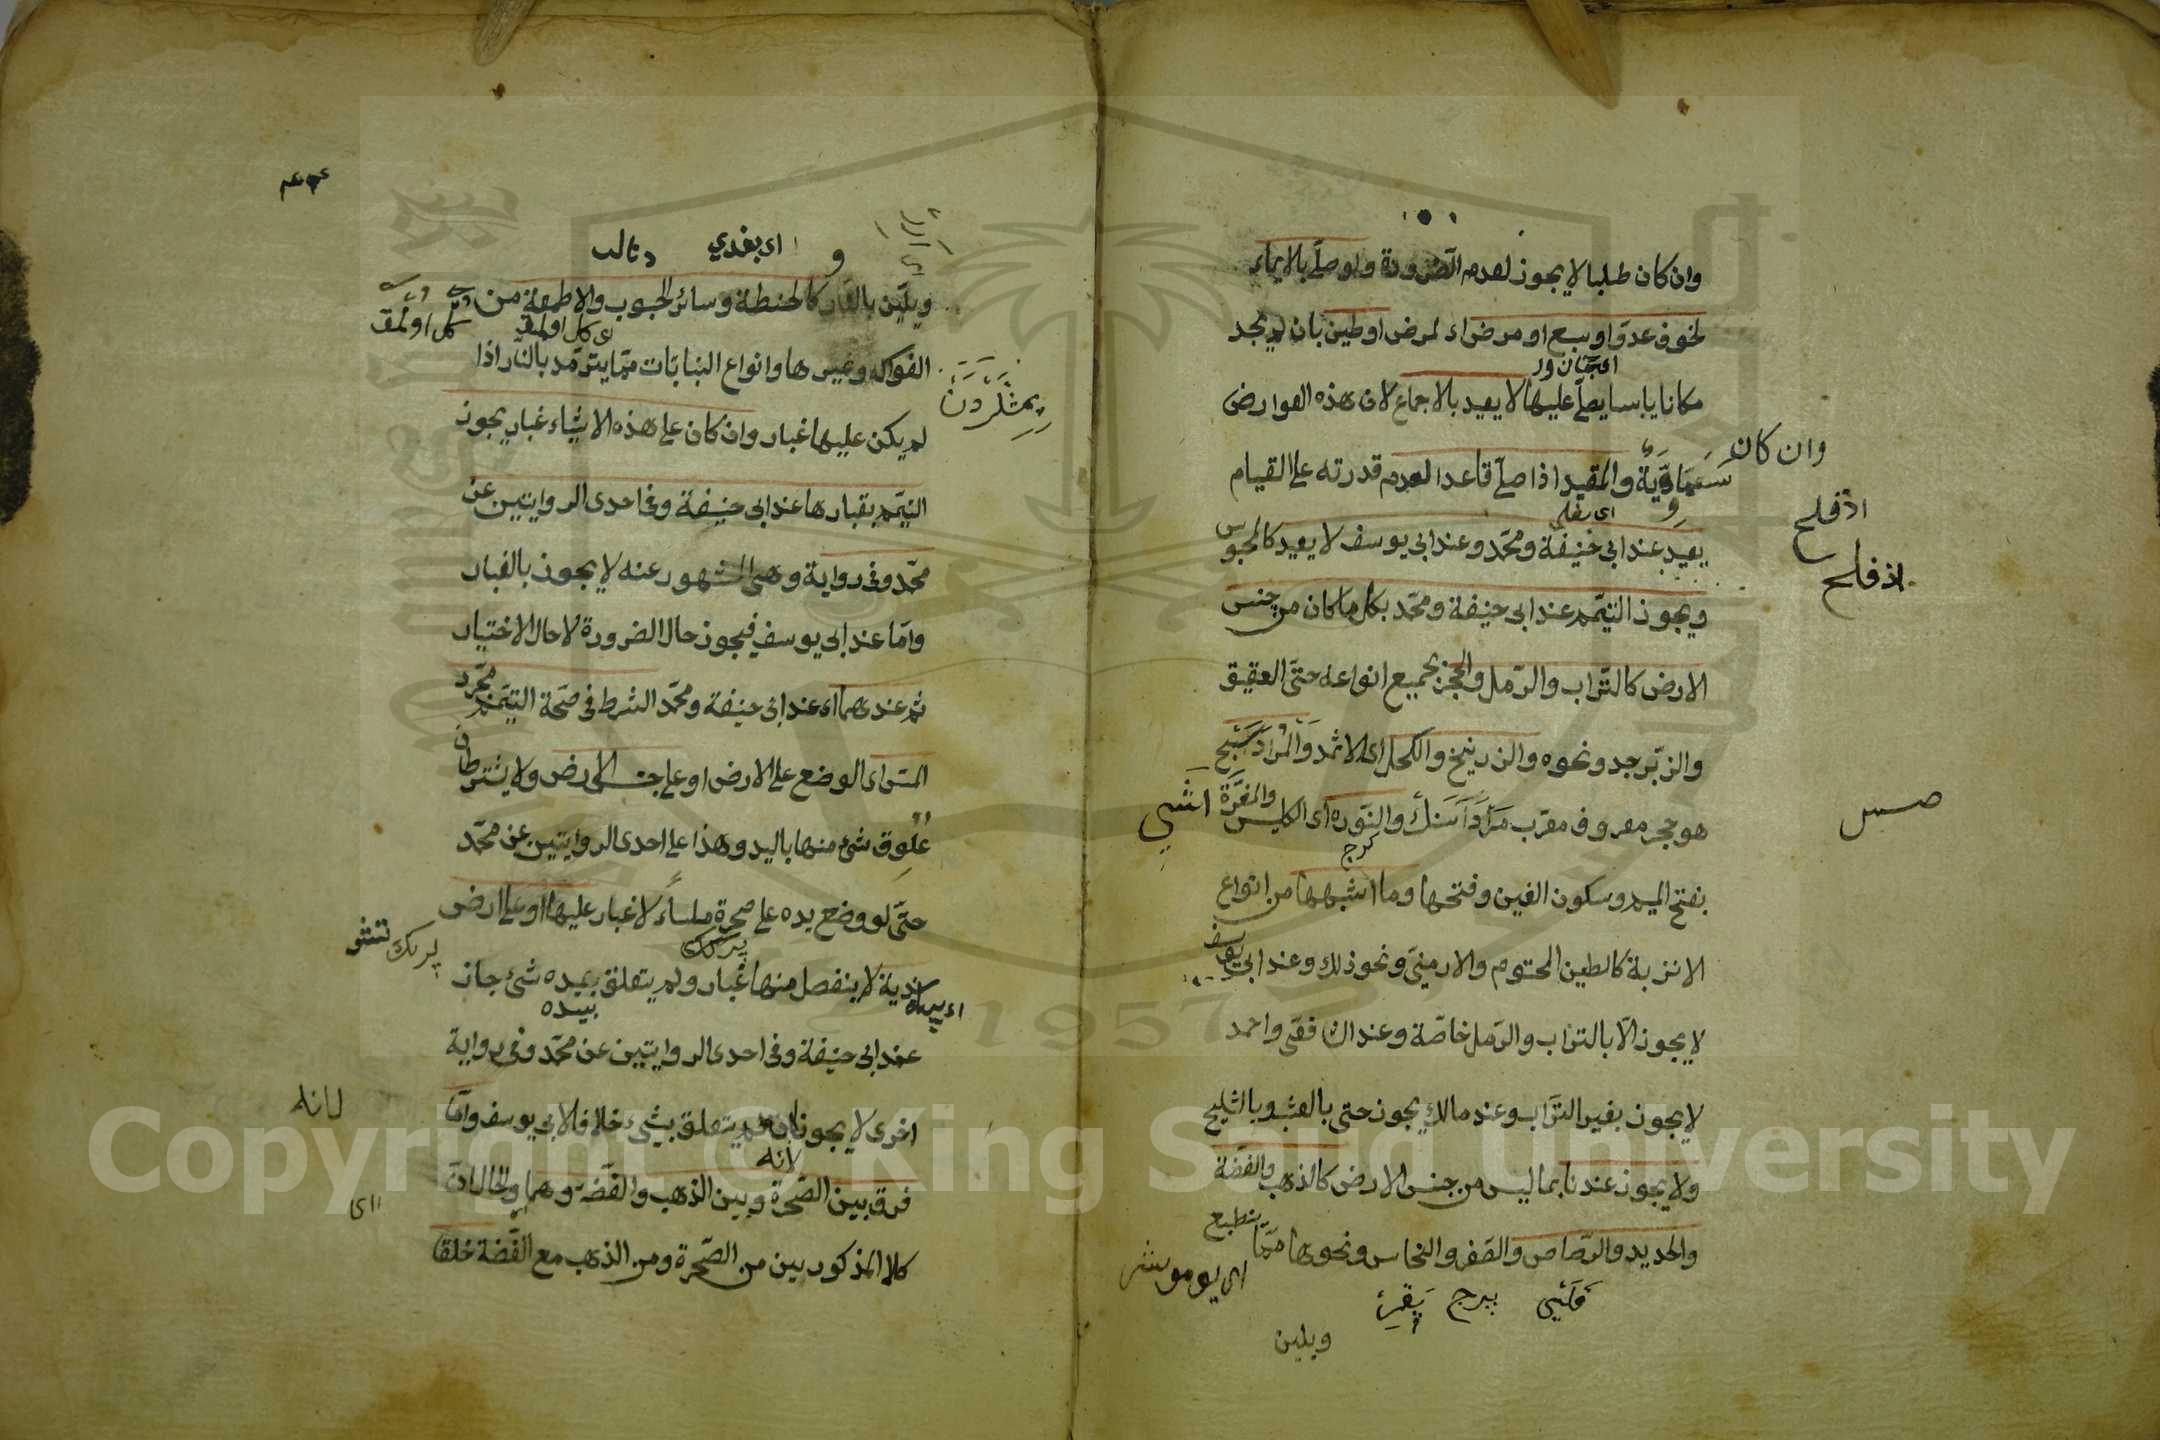 وان كان طلبا لا يجوز لعدم الضرورة ولو صلى بالايماء
لخوف عدو او سبع او مرض اى لمرض او طين بان لم يجد
مكانا يابسا يصلى عليها لا يعيد بالاجماع لان هذه العوارض
وان كان
سماوية والمقيد اذا صلى قاعدا لعدم قدرته على القيام
يعيد عند ابى حنيفة ومحمد وعند ابى يوسف لا يعيد كالمحبوس
ويجوز التيمم عند ابى حنيفة ومحمد بكل ما كان من جنس
الارض كالتراب والرمل والحجر بجميع انواعه حتى العقيق
والزبرجد ونحوه والزرنيخ والكحل اى الاثمد والمرادسنج
هو حجر معروف معرب مرداسنك والنوره اى الكلس والمغرة
بفتح الميم وسكون الغين وفتحها وما اشبهها من انواع
الاتربة كالطين المختوم والارمنى ونحو ذلك وعند ابى يوسف
لا يجوز الا بالتراب والرمل خاصة وعند الشافعى واحمد
لا يجوز بغير التراب وعند مالك يجوز حتى بالعشب وبالثلج
ولا يجوز عندنا بما ليس من جنس الارض كالذهب والفضة
والحديد والرصاص والصفر والنحاس ونحوها مما ينطبع
ويلين
ويلين بالنار كالحنطة وسائر الحبوب والاطعمة من
الفواكه وغيرها وانواع النباتات مما يترمد بالنار اذا
لم يكن عليها غبار وان كان على هذه الاشياء غبار يجوز
التيمم بغبارها عند ابى حنيفة وفى احدى الروايتين عن
محمد وفى رواية وهى المشهور عنه لا يجوز بالغبار
واما عند ابى يوسف فيجوز حال الضرورة لا حال الاختيار
ثم عندهما اى عند ابى حنيفة ومحمد الشرط فى صحة التيمم مجرد
المس اى الوضع على الارض او على جنس الارض ولا يشترطان
علوق شئ منها باليد وهذا على احدى الروايتين عن محمد
حتى لو وضع يده على صخرة ملساء لا غبار عليها او على ارض
ندية لا ينفصل منها غبار ولم يتعلق بيده شئ جاز
بيده
عند ابى حنيفة وفى احدى الروايتين عن محمد وفى رواية
اخرى لا يجوز لم يتعلق بشئ خلافا لابى يوسف واما
لانه
فرق بين الصخرة وبين الذهب والفضة وهما والحال ان
كلا المذكورين من الصخرة ومن الذهب مع الفضة خلقا
Copyright © King Saud University
1957